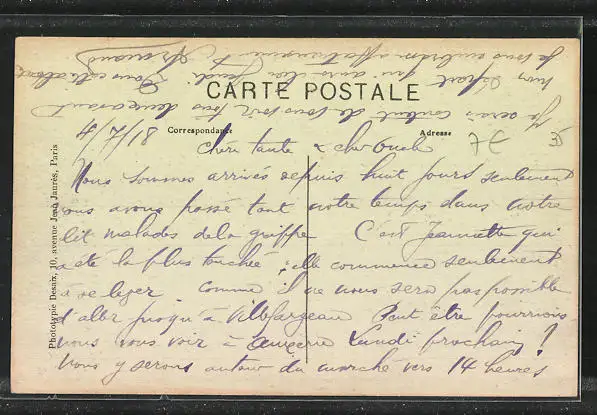 CARTE POSTALE
Correspondance
Adresse
7€
4/7/18
Chère tante & cher Oncle
Nous sommes arrivés depuis huit jours seulement
nous avons passé tout notre temps dans notre
lit malades de la grippe C'est Jeannette qui
a été la plus touchée, elle commence seulement
à se lever Comme il ne nous sera pas possible
d'aller jusqu'à Villefargeau Peut être pourrions
nous vous voir à Auxerre Lundi prochain !
Nous y serons autour du marché vers 14 heures
Je serais content de vous voir tous deux avant
mon départ qui aura lieu Jeudi
je vous embrasse affectueusement
Phototypie Desaix, 10, avenue Jean Jaurès, Paris